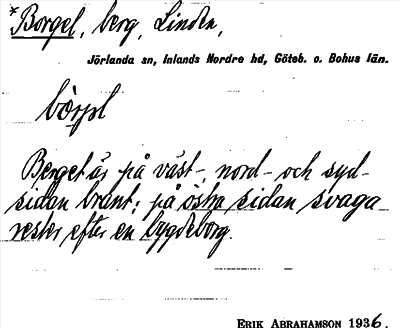 *Borgel, berg, Linden,
Jörlanda sn, Inlands Nordre hd, Göteb. o. Bohus län.
Berget är på väst-, nord- och syd-
sidan brant; på östra sidan svaga
rester efter en bygdeborg.
ERIK ABRAHAMSON 1936.